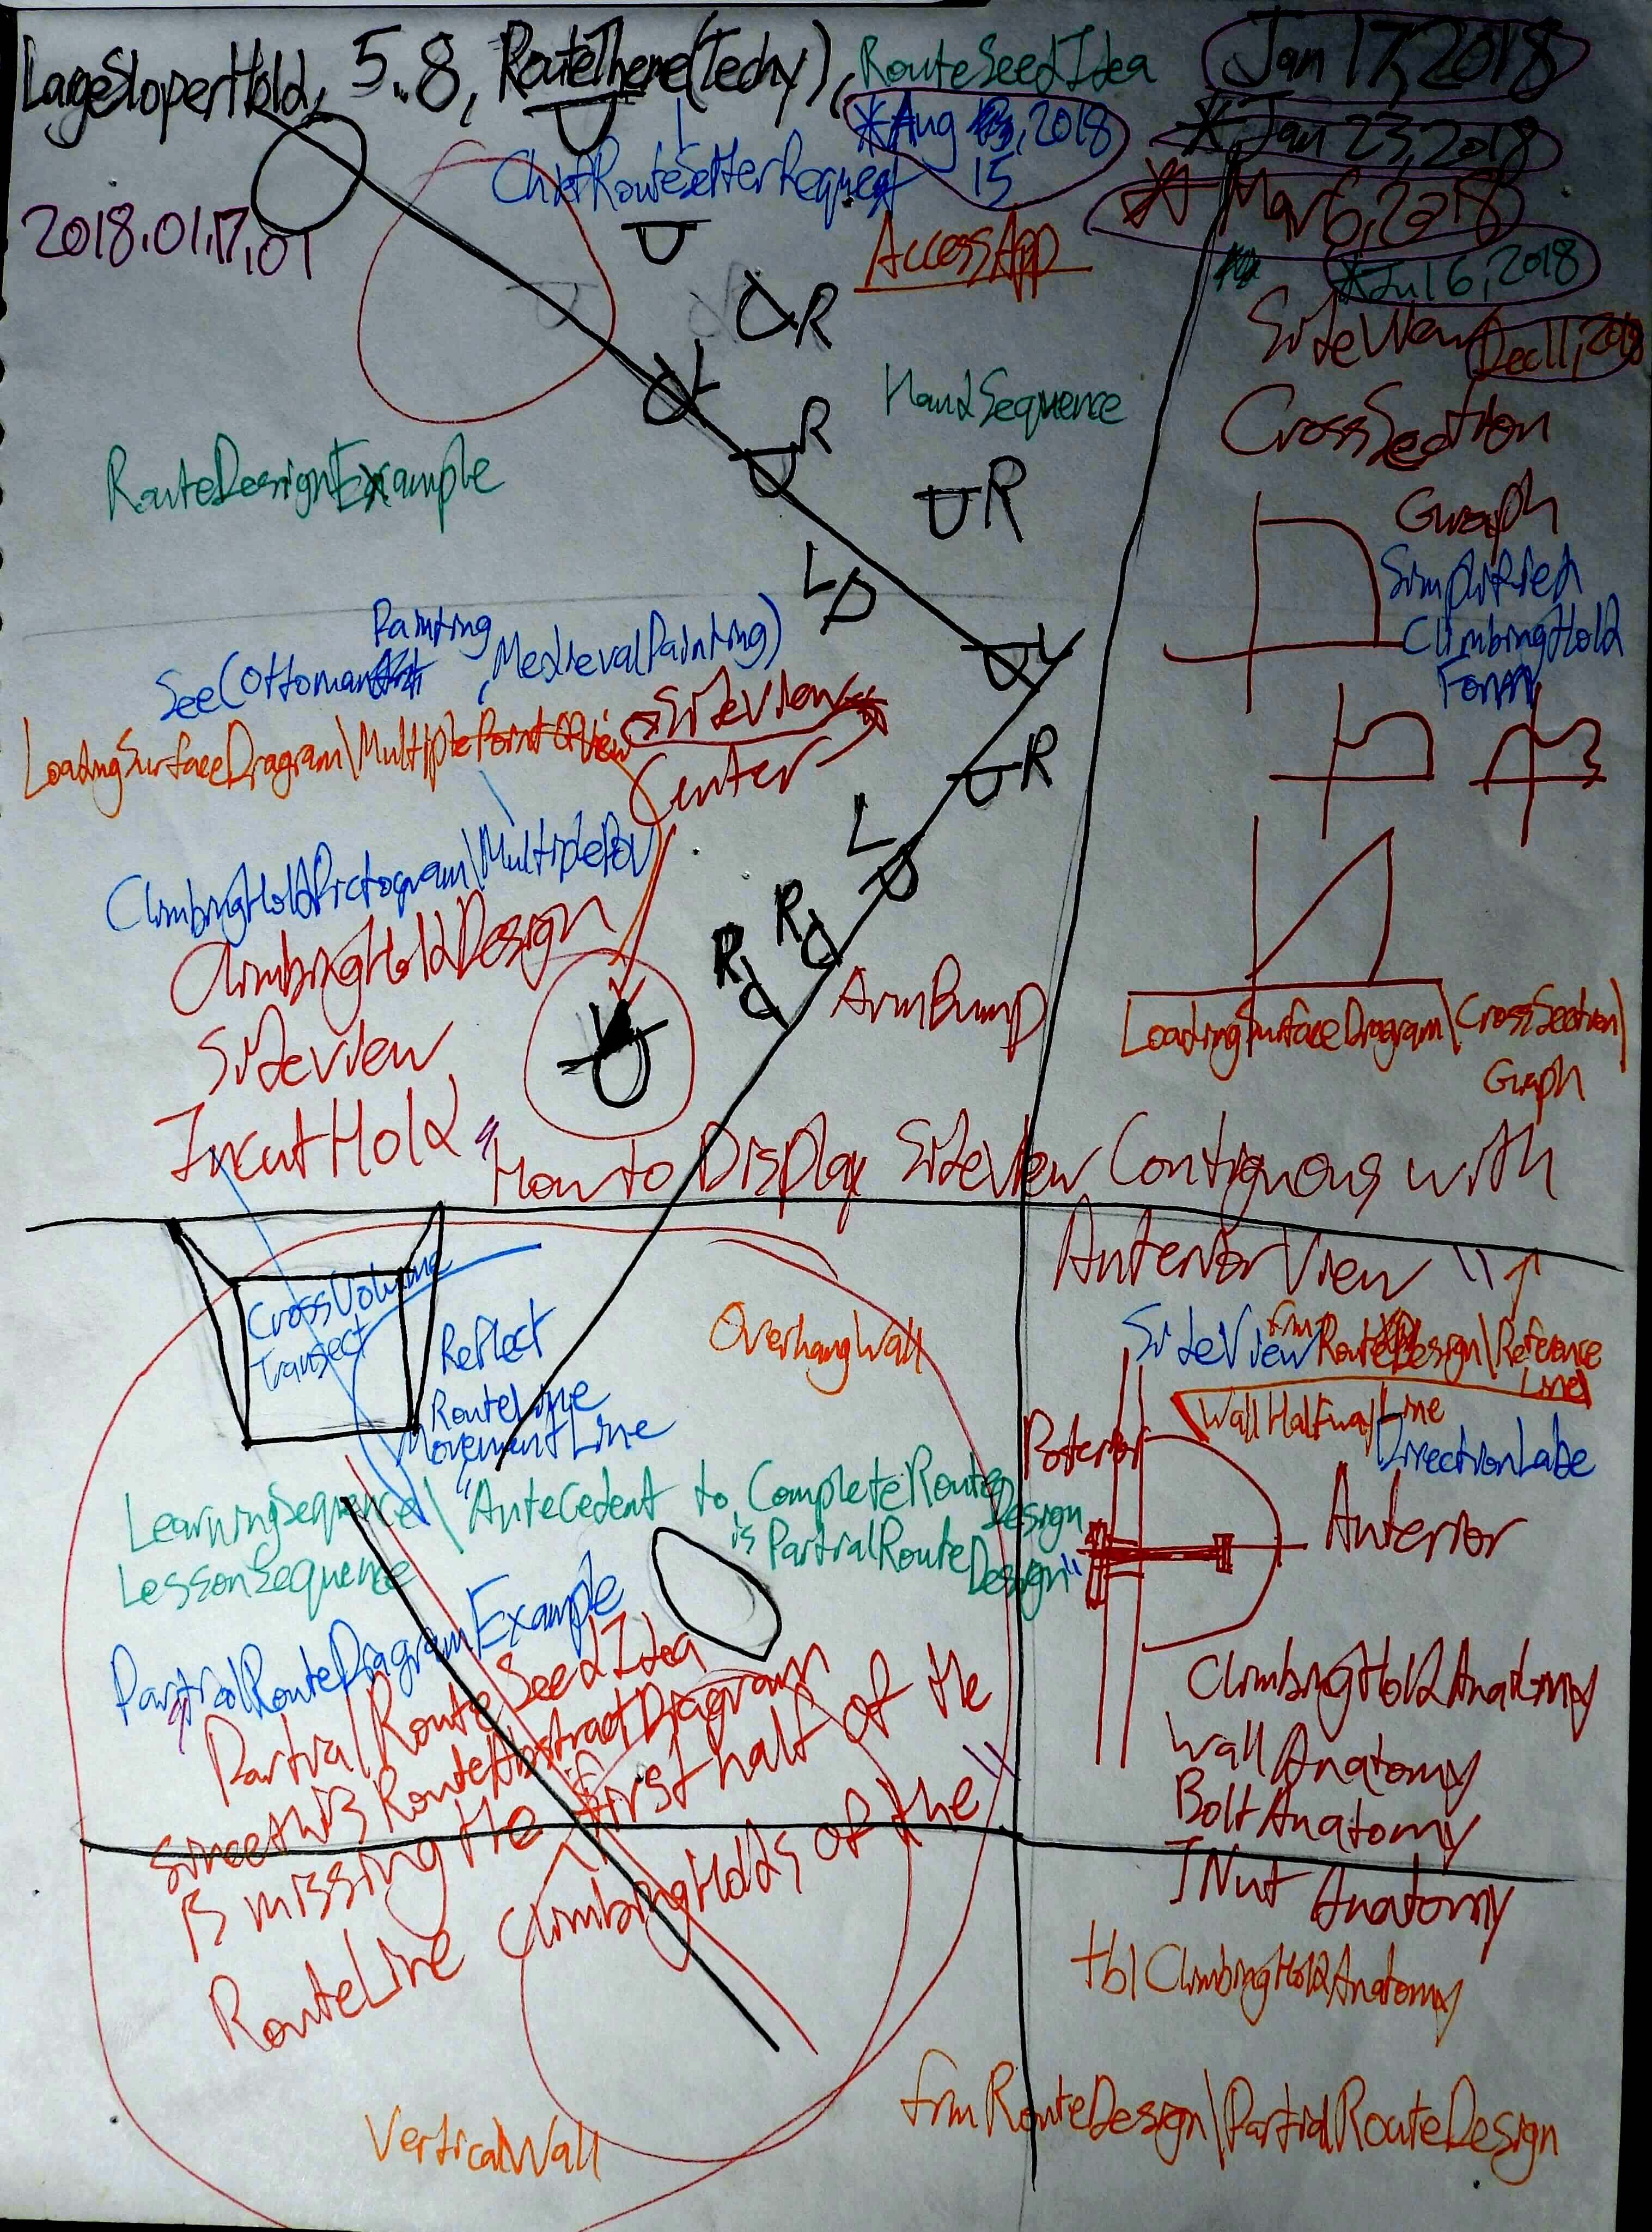 LargeSloperHold, 5.8, RouteTheme(Techy), RouteSeedIdea
Jan 17, 2018
*Aug 15, 2018
*Jan 23, 2018
ChiefRouteSetterRequest
* Mar 6, 2018
2018.01.17.01
AccessApp
*Jul 6, 2018
SideView
Dec 11, 2018
R
L
HandSequence
CrossSection
R
RouteDesignExample
R
Graph
L
Simplified
ClimbingHold
Form
Painting
See(Ottoman, MedievalPainting)
L
SideView
LoadingSurfaceDiagram\MultiplePointOfView
Center
R
L
ClimbingHoldPictogram\MultiplePOV
ClimbingHoldDesign
R
R
ArmBump
SideView
LoadingSurfaceDiagram\CrossSection\
Graph
IncutHold
"How to Display SideView Contiguous with
AnteriorView"
CrossVolume
Transect
Reflect
RouteLine
MovementLine
OverhangWall
SideView
frmRouteDesign\Reference
Line
WallHalfwayLine
DirectionLabel
Posterior
Anterior
LearningSequence\"Antecedent to CompleteRoute
Design
is PartialRoute
Design"
LessonSequence
PartialRouteDiagramExample
"Partial RouteSeedIdea
since this RouteAbstractDiagram
is missing the first half of the
RouteLine ClimbingHolds of the"
ClimbingHoldAnatomy
WallAnatomy
BoltAnatomy
TNut Anatomy
tblClimbingHoldAnatomy
frmRouteDesign\PartialRouteDesign
VerticalWall